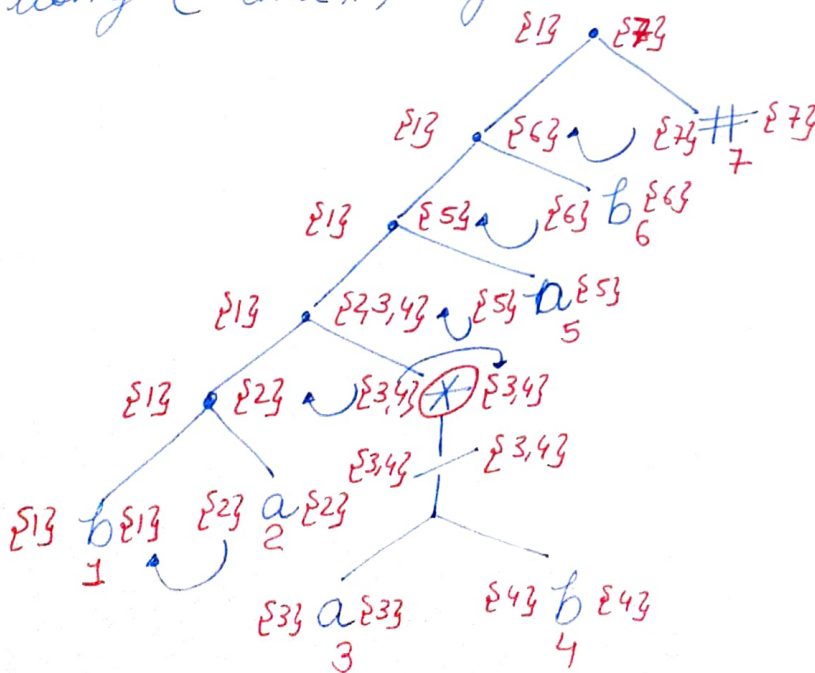 using
{1} • {7}
{1} • {6} {7} # {7}
7
{1} • {5} {6} b {6}
6
{1} • {2,3,4} {5} a {5}
5
{1} • {2} {3,4} * {3,4}
{3,4} {3,4}
{1} b {1} {2} a {2}
1 2
{3} a {3} {4} b {4}
3 4